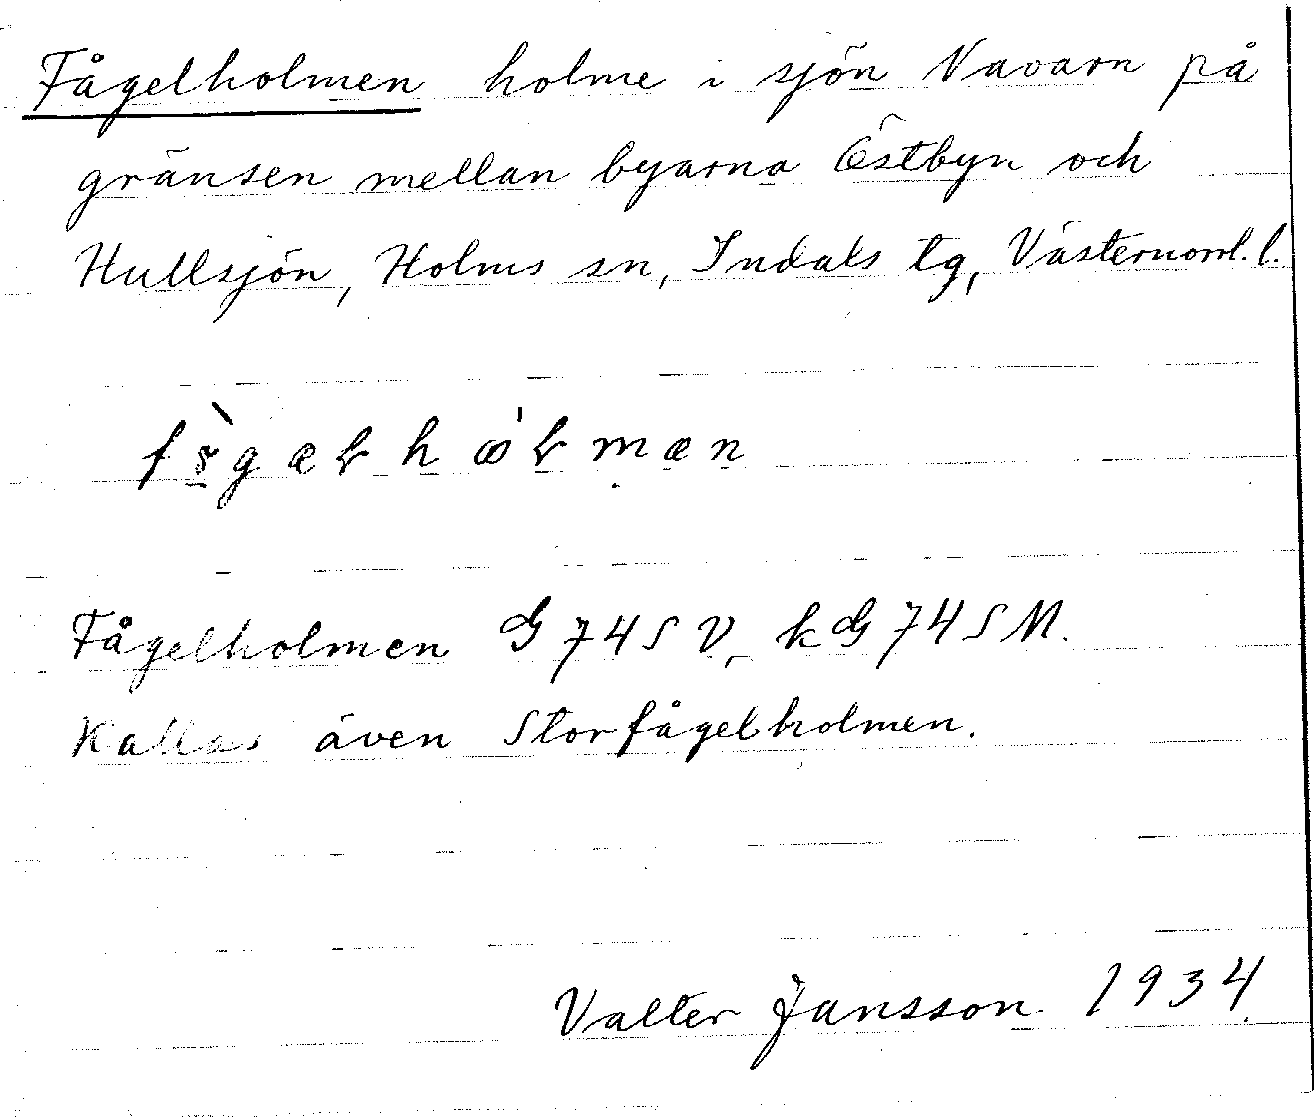 Fågelholmen holme i sjön Navarn på
gränsen mellan byarna Östbyn och
Hullsjön, Holms sn, Indals tg, Västernorrl. l.
Fågelholmen G 74 S V, k G 74 S M.
Kallas även Storfågelholmen.
Valter Jansson 1934.